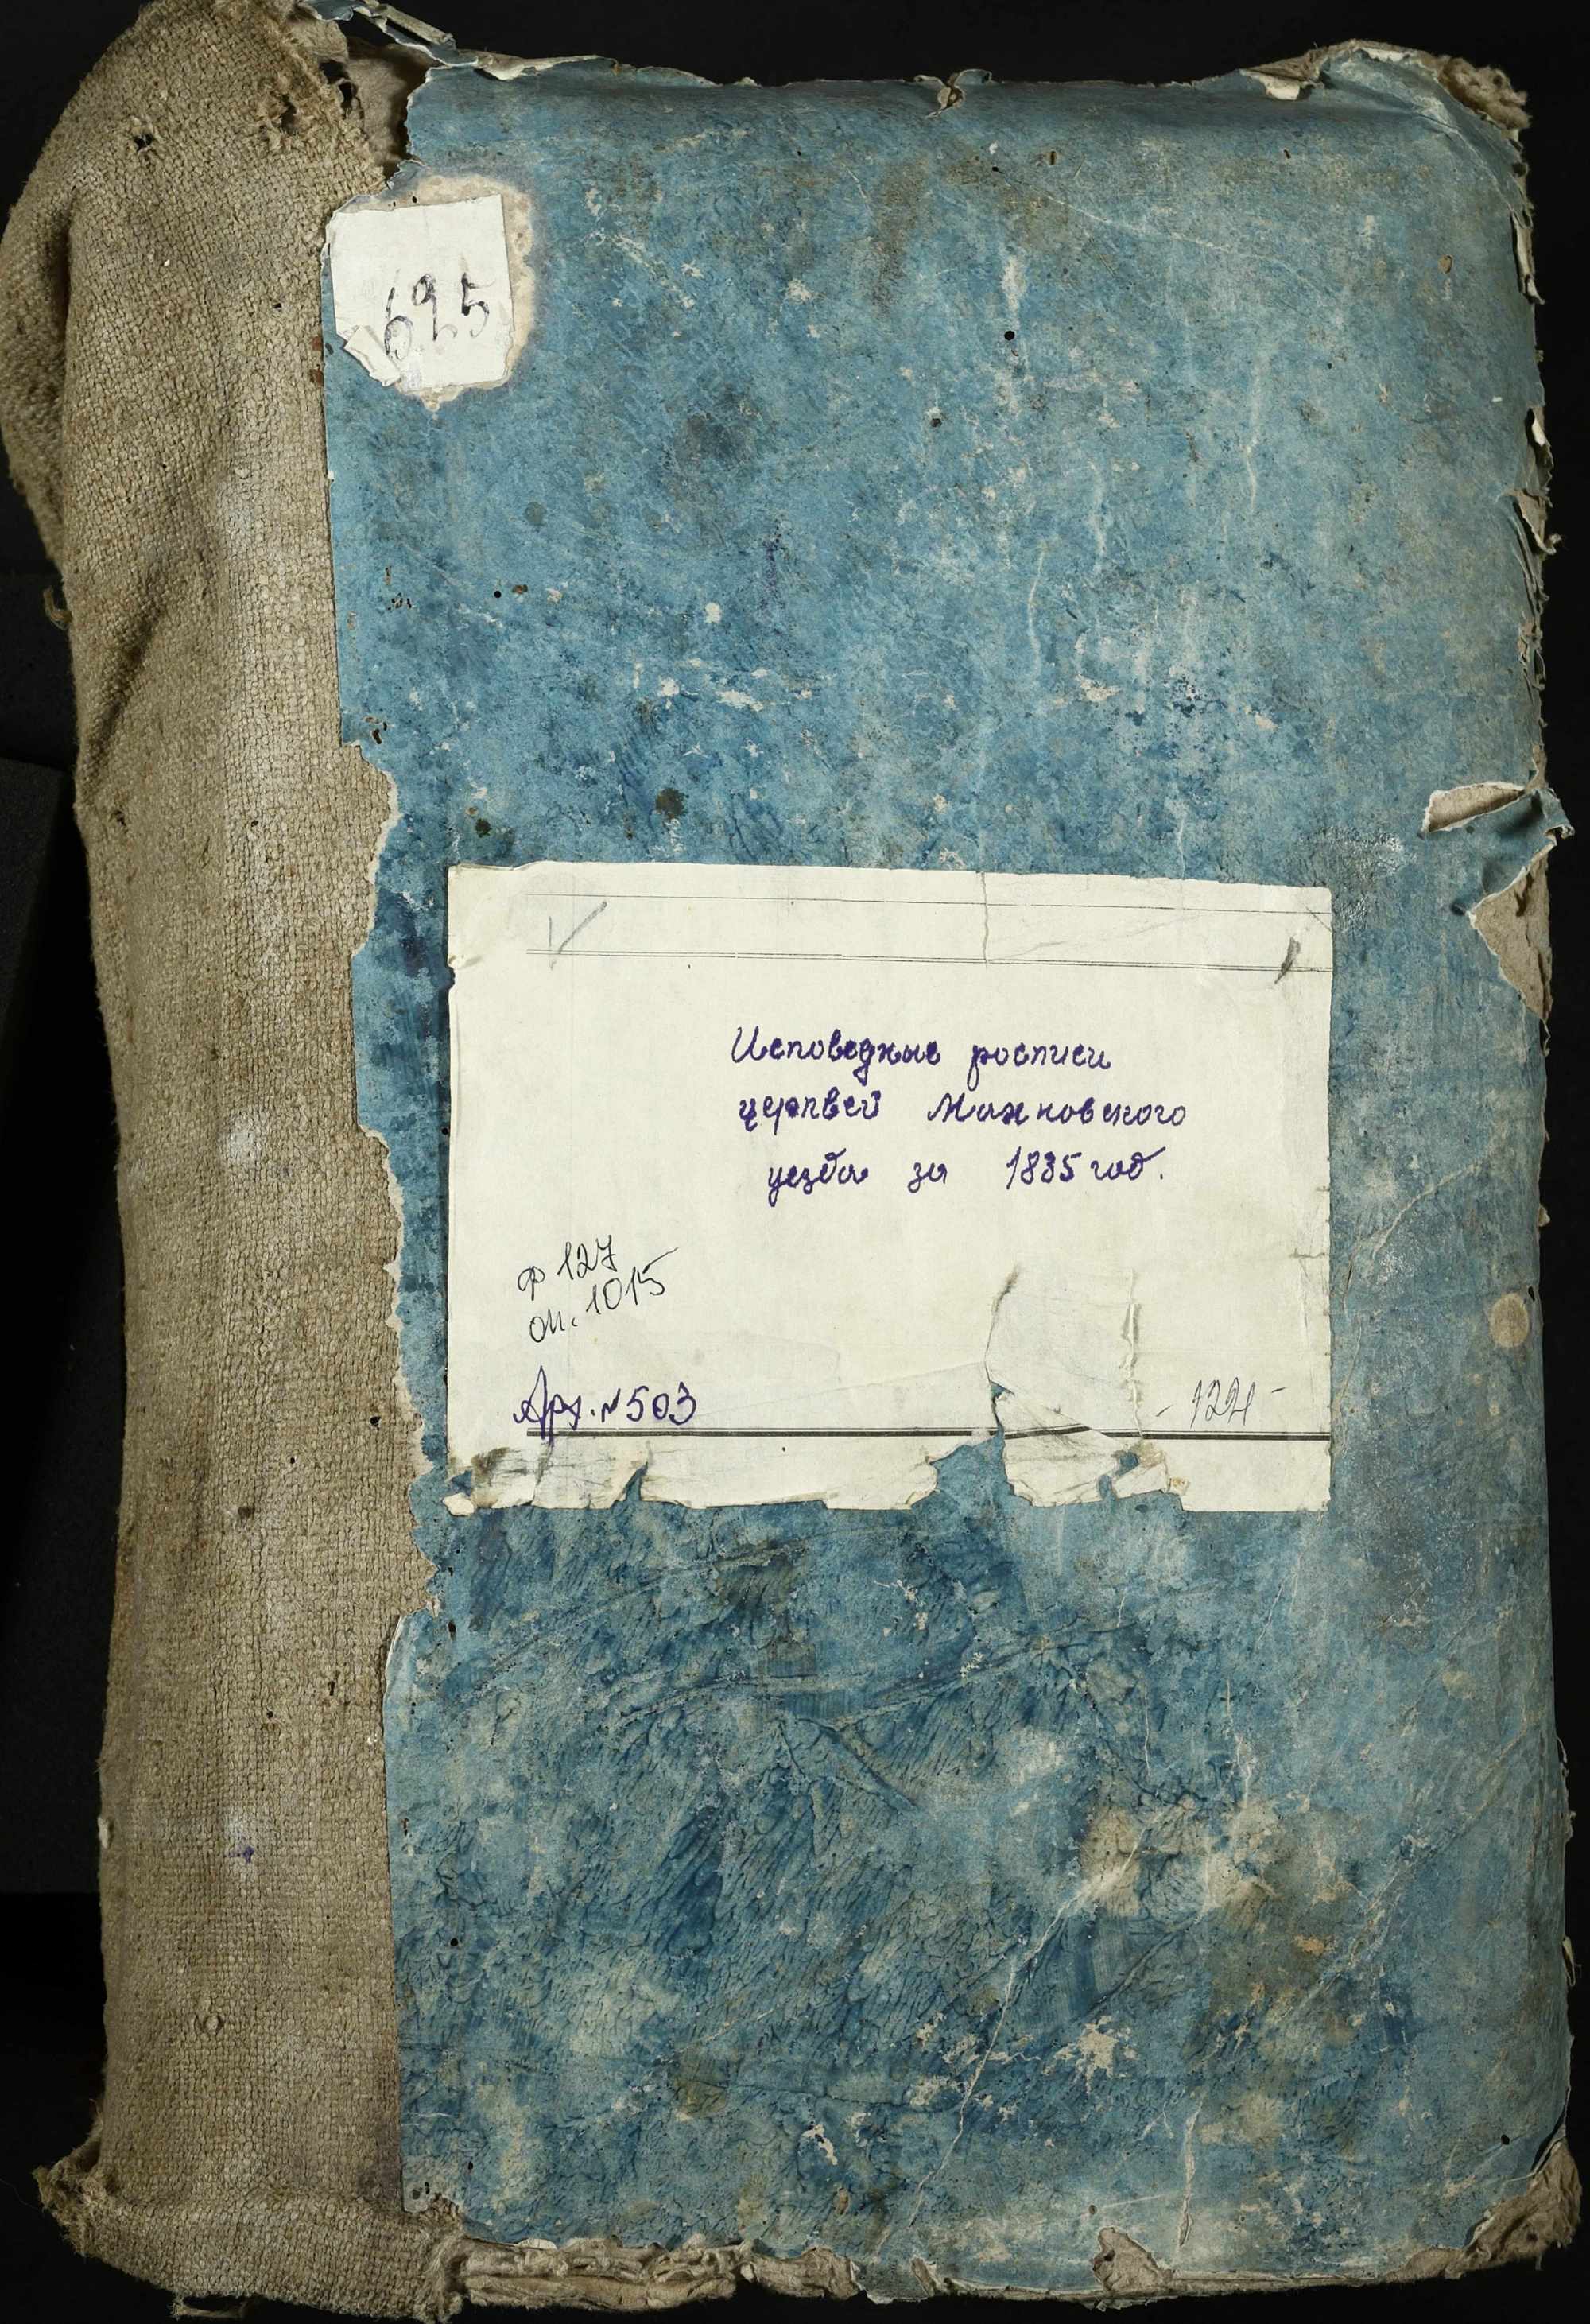 695
Исповедные росписи
церквей Махновского
уезда за 1835 год.
ф 127
оп. 1015
Арх. № 503
- 1221 -